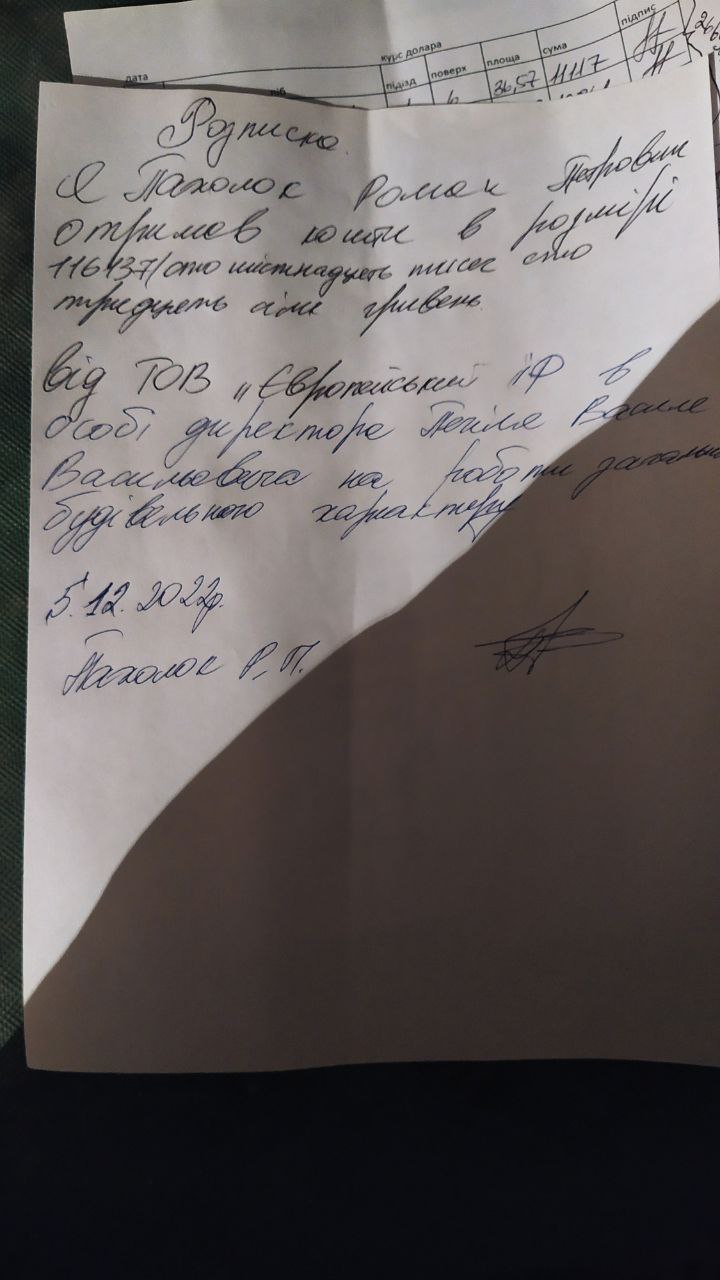 дата
піб
курс долара
підїзд поверх площа сума підпис
6 36,57 11117
Розписка.
Я Пахолок Роман Петрович
отримав кошти в розмірі
116137/сто шістнадцять тисяч сто
тридцять сім гривень
від ТОВ „Європейський ІФ в
особі директора Василя
Васильовича на роботи загально
будівельного характеру
5.12.2022р.
Пахолок Р.П.